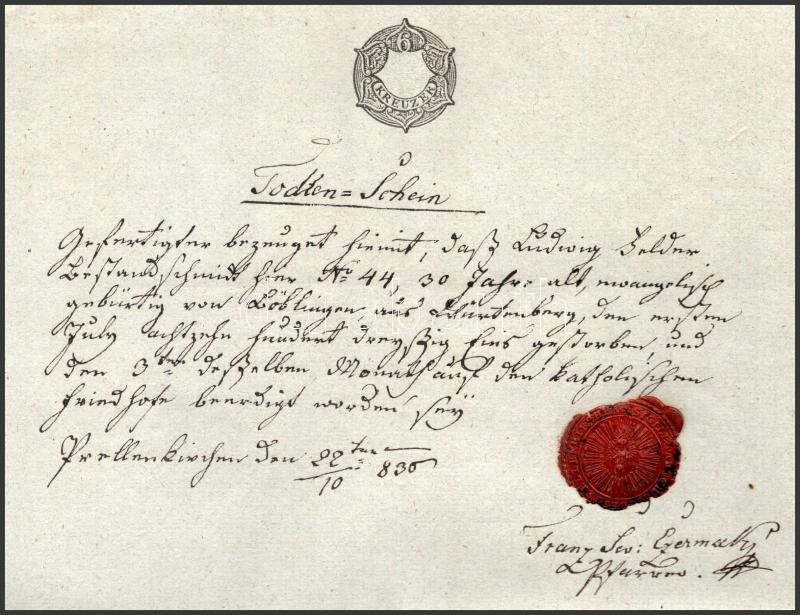 6
KREUZER
Todten=Schein
Gefertigter bezeuget hiemit, daß Ludwig Zelder
Bestandschmidt hier No 44, 30 Jahre alt, ewangelisch
gebürtig von Böblingen, aus Würtenberg, den ersten
July achtzehn hundert dreyßig Eins gestorben, und
den 3ten desselben Monaths auf den Katholischen
Friedhofe beerdigt worden seÿ
Prellenkirchen den 22ten/10 836
Franz
Pfarrer.